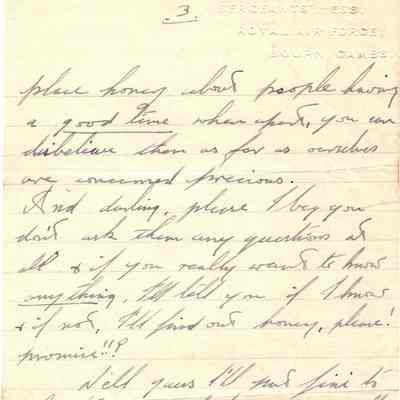 3.
SERGEANTS' MESS,
ROYAL AIR FORCE,
BOURN, CAMBS.
place honey about people having
a good time when apart, you can
disbelieve them as far as ourselves
are concerned precious.
And darling, please I beg you
don't ask them any questions at
all & if you really want to know
anything, I'll tell you if I know
& if not, I'll find out honey, please!
promise!!?
Well yours I'll put fini to